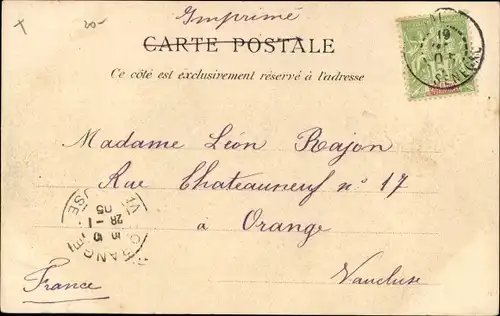 20-
Imprimé
CARTE POSTALE
Ce côté est exclusivement réservé à l'adresse
19
SENEGAL
Madame Léon Rajon
Rue Chateauneuf n° 17
à Orange
Vaucluse
France
ORANGE
28 -1
05